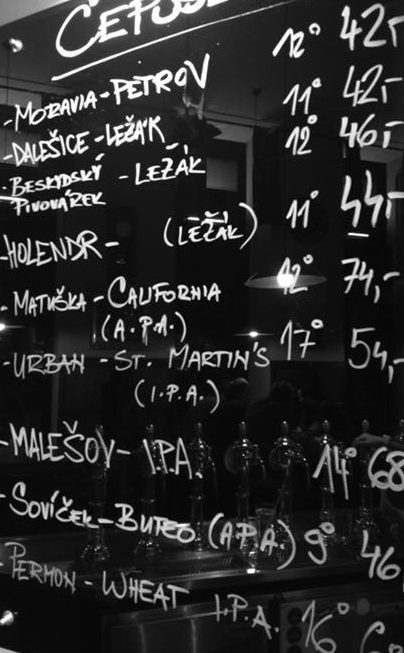 ČEPUJE
-MORAVIA-PETROV 12° 42,-
-DALEŠICE-LEŽÁK 11° 42,-
-BESKYDSKÝ -LEŽÁK 12° 46,-
PIVOVÁREK
-HOLENDR- (LEŽÁK) 11° 44,-
-MATUŠKA-CALIFORNIA 12° 74,-
(A.P.A.)
-URBAN -ST. MARTIN'S 17° 54,-
(I.P.A.)
-MALEŠOV- I.P.A. 14° 68
-SOVÍČEK-BUTEO (APA.) 9° 46
-PERMON-WHEAT I.P.A. 16°